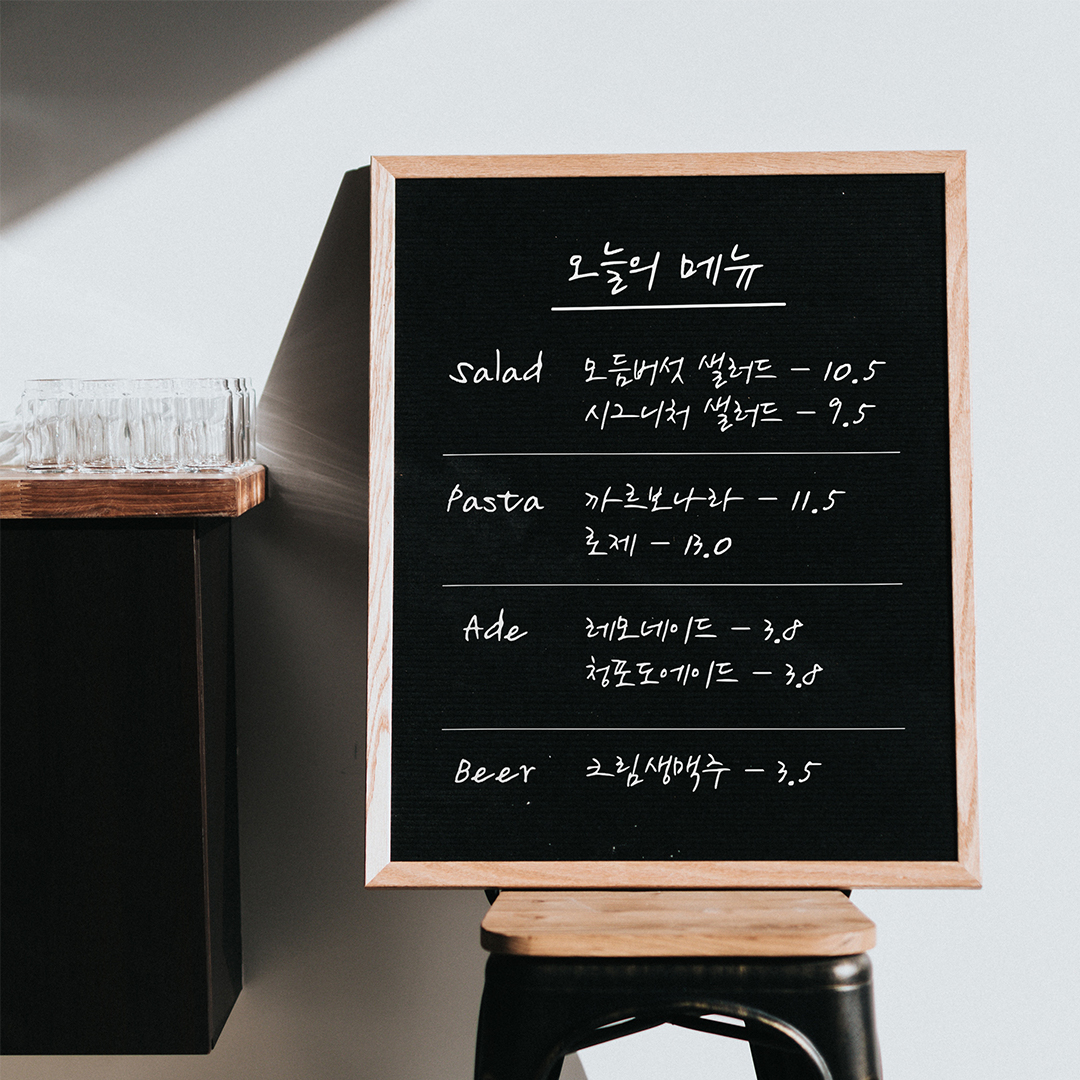 오늘의 메뉴
salad 모듬버섯 샐러드 - 10.5
시그니처 샐러드 - 9.5
Pasta 까르보나라 - 11.5
로제 - 13.0
Ade 레모네이드 - 3.8
청포도에이드 - 3.8
Beer 크림생맥주 - 3.5